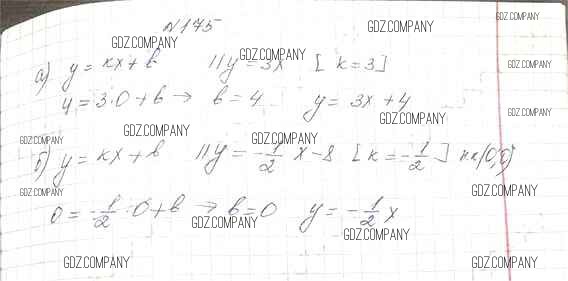 №175
GDZ.COMPANY
GDZ.COMPANY
GDZ.COMPANY
а) y = kx + b || y = 3x [k = 3]
GDZ.COMPANY
GDZ.COMPANY
y = 3·0 + b → b = 4 y = 3x + 4
GDZ.COMPANY
GDZ.COMPANY
GDZ.COMPANY
GDZ.COMPANY
GDZ.COMPANY
б) y = kx + b || y = -1/2 x - 8 [k = -1/2] (0;0)
GDZ.COMPANY
GDZ.COMPANY
0 = -1/2 · 0 + b → b = 0 y = -1/2 x
GDZ.COMPANY
GDZ.COMPANY
GDZ.COMPANY
GDZ.COMPANY
GDZ.COMPANY